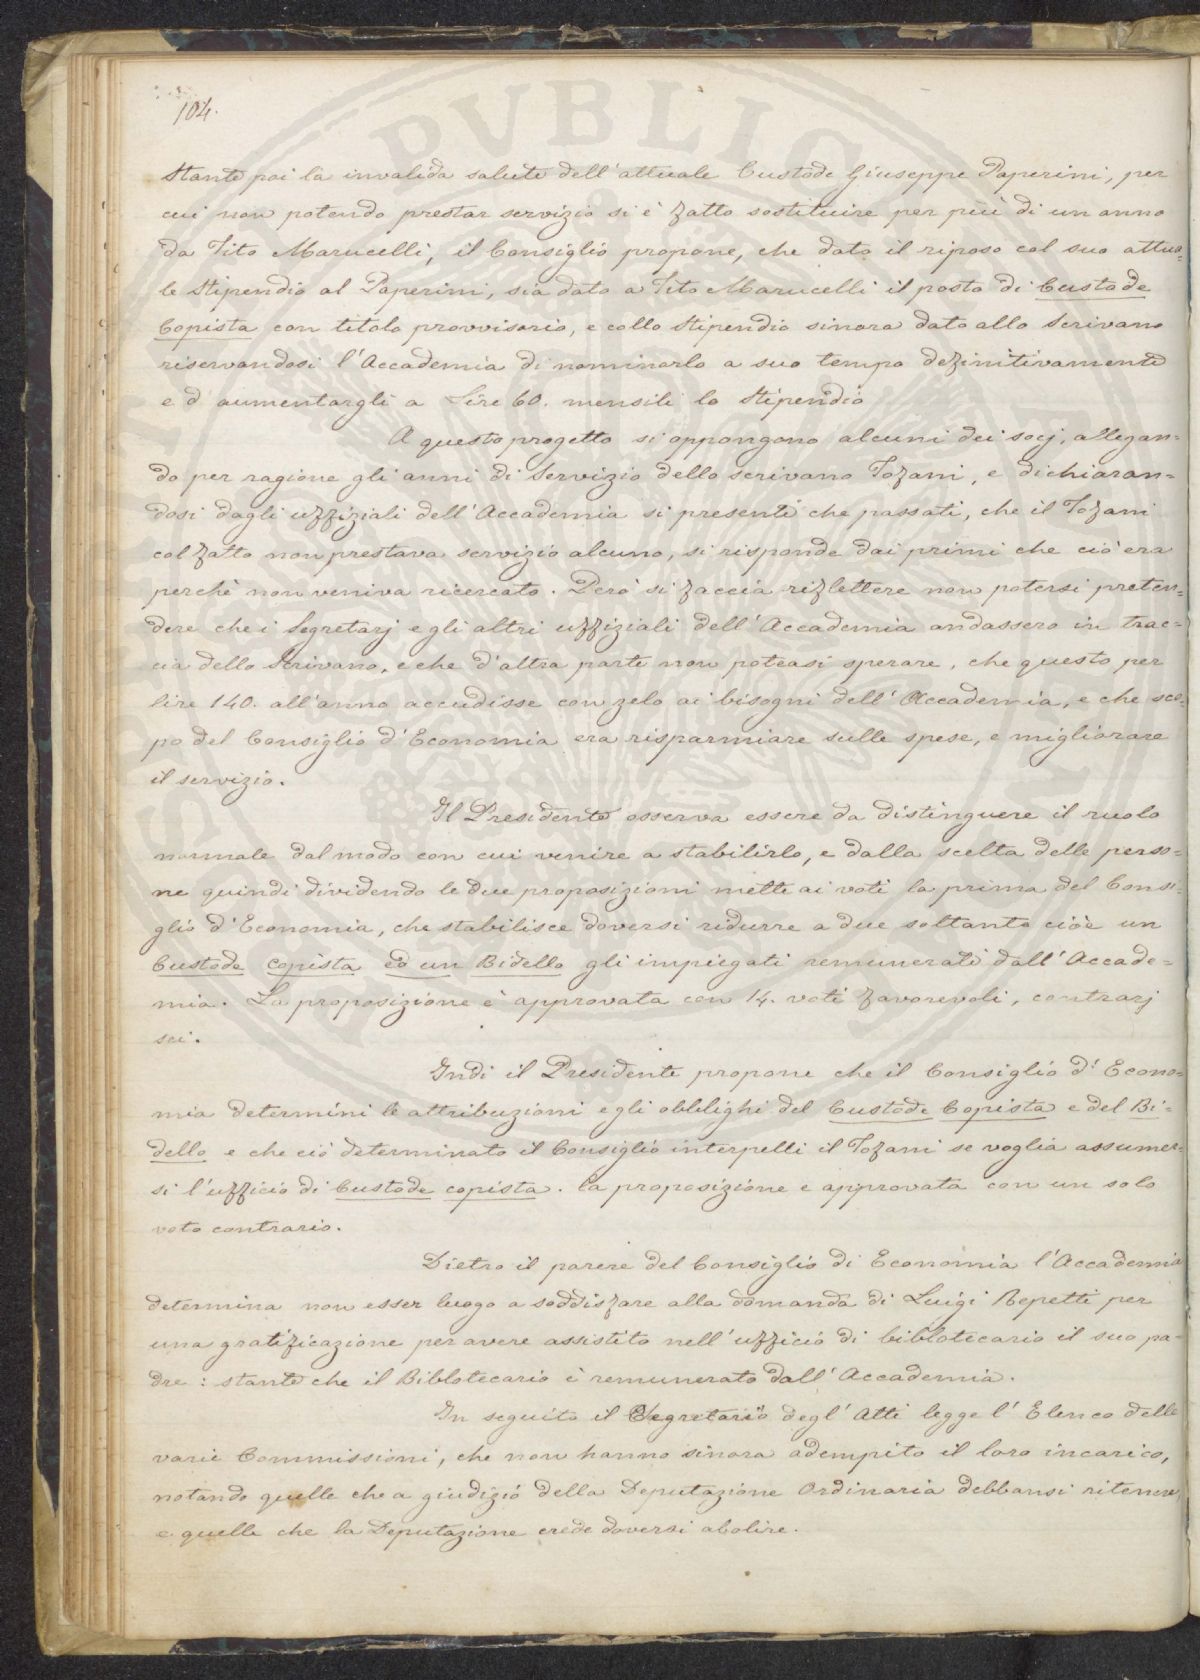 104.
Stante poi la invalida salute dell'attuale Custode Giuseppe Paperini, per
cui non potendo prestar servizio si è fatto sostituire per più di un anno
da Tito Marucelli, il Consiglio propone, che dato il riposo col suo attua=
le stipendio al Paperini, sia dato a Tito Marucelli il posto di Custode
Copista con titolo provvisorio, e collo stipendio sinora dato allo Scrivano
riservandosi l'Accademia di nominarlo a suo tempo definitivamente
ed aumentargli a Lire 60. mensili lo stipendio
A questo progetto si oppongono alcuni dei socj, allegan=
do per ragione gli anni di Servizio dello scrivano Tofani, e dichiaran=
dosi dagli uffiziali dell'Accademia si presenti che passati, che il Tofani
col fatto non prestava servizio alcuno, si risponde dai primi che ciò era
perchè non veniva ricercato. Però si faccia riflettere non potersi preten=
dere che i Segretarj e gli altri uffiziali dell'Accademia andassero in trac=
cia dello Scrivano, e che d'altra parte non poteasi sperare, che questo per
lire 140. all'anno accudisse con zelo ai bisogni dell'Accademia, e che sco=
po del Consiglio d'Economia era risparmiare sulle spese, e migliorare
il servizio.
Il Presidente osserva essere da distinguere il ruolo
normale dal modo con cui venire a stabilirlo, e dalla scelta delle perso=
ne quindi dividendo le due proposizioni mette ai voti la prima del Consi=
glio d'Economia, che stabilisce doversi ridurre a due soltanto cioè un
Custode Copista ed un Bidello gli impiegati remunerati dall'Accade=
mia. La proposizione è approvata con 14. voti favorevoli, contrarj
sei.
Indi il Presidente propone che il Consiglio d'Econo=
mia determini le attribuzioni e gli obblighi del Custode Copista e del Bi=
dello e che ciò determinato il Consiglio interpelli il Tofani se voglia assumer=
si l'ufficio di Custode copista. la proposizione e approvata con un solo
voto contrario.
Dietro il parere del Consiglio di Economia l'Accademia
determina non esser luogo a soddisfare alla domanda di Luigi Repetti per
una gratificazione per avere assistito nell'ufficio di biblotecario il suo pa=
dre: stante che il Biblotecario è remunerato dall'Accademia.
In seguito il Segretario degl'Atti legge l'Elenco delle
varie Commissioni, che non hanno sinora adempito il loro incarico,
notando quelle che a giudizio della Deputazione Ordinaria debbansi ritenere
e quelle che la Deputazione crede doversi abolire.